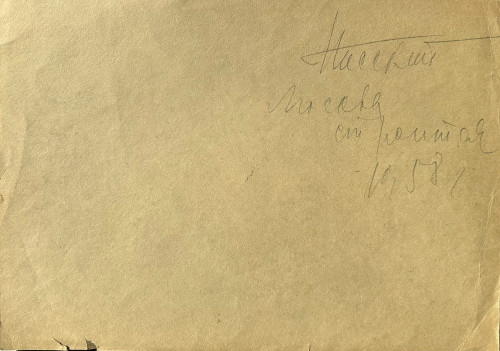 Нисский
Москва
строится
1958 г